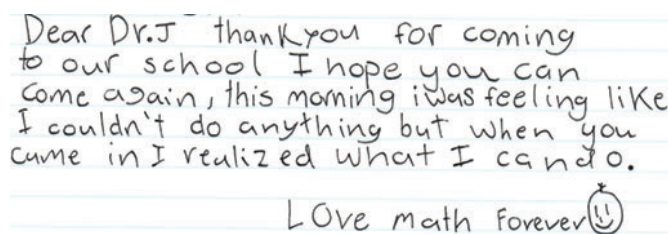 Dear Dr.J thankyou for coming
to our school I hope you can
come again, this morning iwas feeling like
I couldn't do anything but when you
came in I realized what I can do.
LOve math Forever